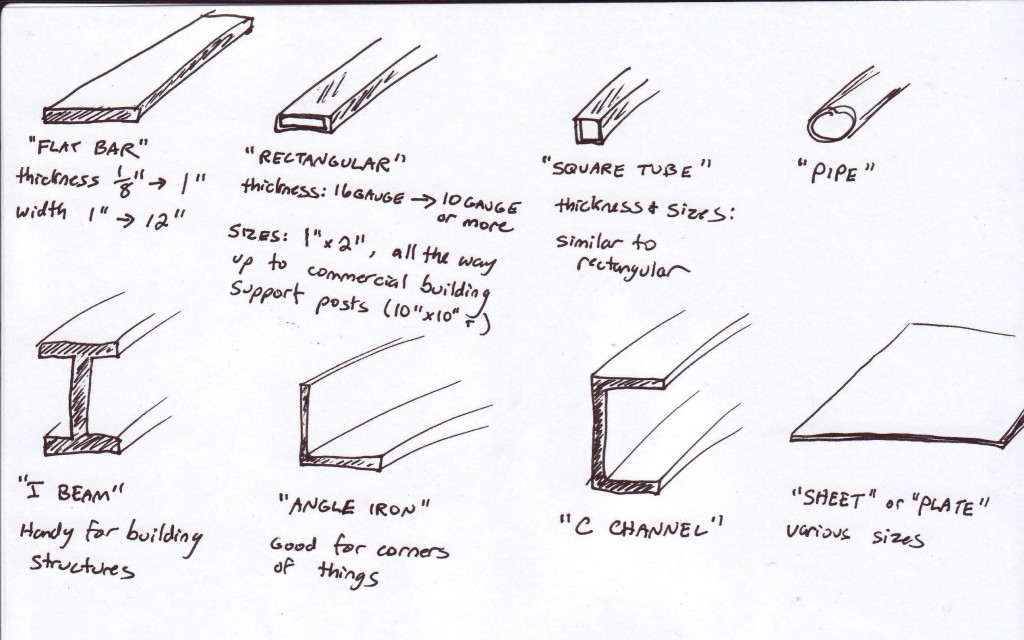 "FLAT BAR"
thickness 1/8" → 1"
width 1" → 12"
"RECTANGULAR"
thickness: 16 GAUGE → 10 GAUGE
or more
SIZES: 1" x 2", all the way
up to commercial building
Support posts (10" x 10" ±)
"SQUARE TUBE"
thickness & sizes:
similar to
rectangular
"PIPE"
"I BEAM"
Handy for building
structures
"ANGLE IRON"
Good for corners
of things
"C CHANNEL"
"SHEET" or "PLATE"
various sizes